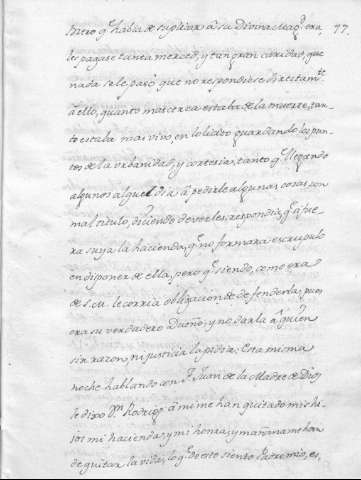 77.
mero q̃ habia de suplicar a su Divina Mag.d era,
les pagase tanta merced, y tan gran caridad, que
nada se le pasó, que no respondiese directam.te
a ello, quanto mas cerca estaba de la muerte, tan-
to estaba mas vivo, en lo licito guardando los pun-
tos de la urbanidad, y cortesias, tanto q̃ llegando
algunos alguel dia a pedirle algunas cosas con
mal titulo, diciendo deverles, respondia, q̃ si fue-
ra suya la hacienda, q̃ no formara escrupulo
en disponer de ella, pero q̃ siendo, como era
de S.M. le corria obligacion de defenderla, pues
era su verdadero Dueño, y no darla a quien
sin razon, ni justicia la pedia: Esta misma
noche hablando con F. Juan de la Madre de Dios
le dixo D.n Rodrigo, a mi me han quitado mis hi-
jos mi hacienda, y mi honra, y mañana me han
de quitar la vida, lo q̃ de esto siento Padre mio, es,